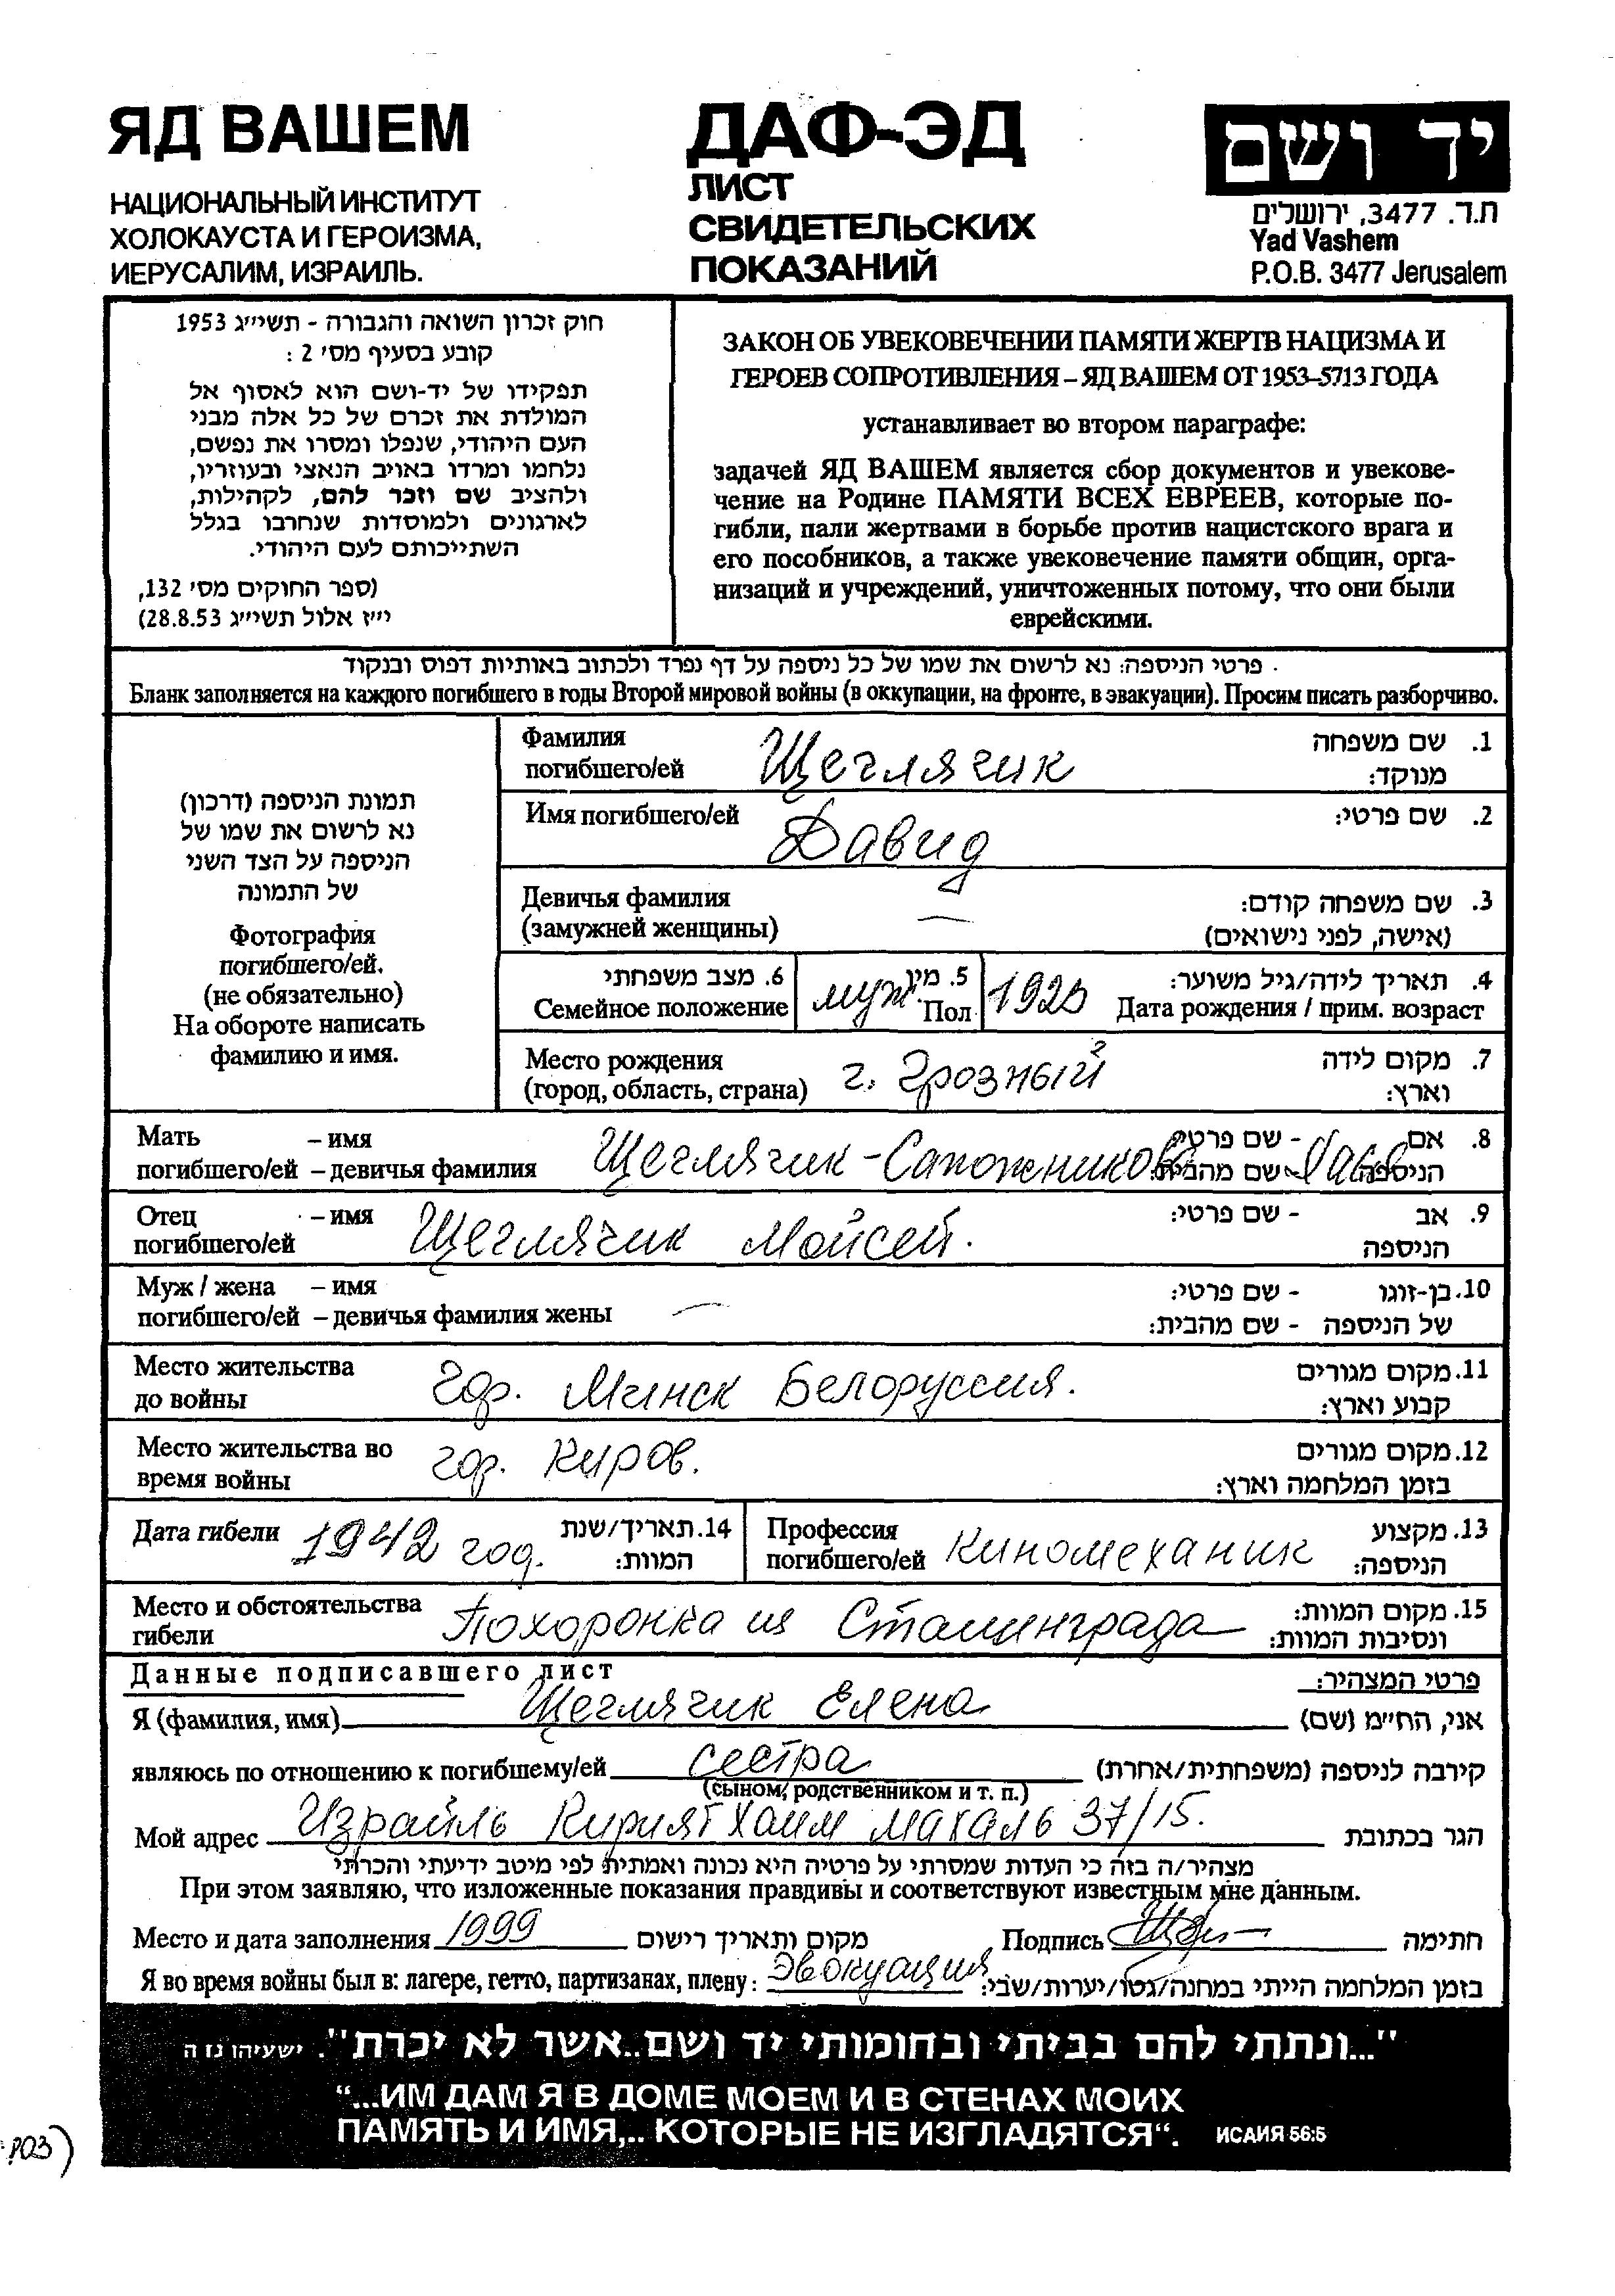 ЯД ВАШЕМ
НАЦИОНАЛЬНЫЙ ИНСТИТУТ
ХОЛОКАУСТА И ГЕРОИЗМА,
ИЕРУСАЛИМ, ИЗРАИЛЬ.
ДАФ-ЭД
ЛИСТ
СВИДЕТЕЛЬСКИХ
ПОКАЗАНИЙ
יד ושם
ת.ד. 3477, ירושלים
Yad Vashem
P.O.B. 3477 Jerusalem
חוק זכרון השואה והגבורה - תשי״ג 1953
קובע בסעיף מס׳ 2 :
תפקידו של יד-ושם הוא לאסוף אל
המולדת את זכרם של כל אלה מבני
העם היהודי, שנפלו ומסרו את נפשם,
נלחמו ומרדו באויב הנאצי ובעוזריו,
ולהציב שם וזכר להם, לקהילות,
לארגונים ולמוסדות שנחרבו בגלל
השתייכותם לעם היהודי.
(ספר החוקים מס׳ 132,
י״ז אלול תשי״ג 28.8.53)
ЗАКОН ОБ УВЕКОВЕЧЕНИИ ПАМЯТИ ЖЕРТВ НАЦИЗМА И
ГЕРОЕВ СОПРОТИВЛЕНИЯ – ЯД ВАШЕМ ОТ 1953–5713 ГОДА
устанавливает во втором параграфе:
задачей ЯД ВАШЕМ является сбор документов и увекове-
чение на Родине ПАМЯТИ ВСЕХ ЕВРЕЕВ, которые по-
гибли, пали жертвами в борьбе против нацистского врага и
его пособников, а также увековечение памяти общин, орга-
низаций и учреждений, уничтоженных потому, что они были
еврейскими.
פרטי הניספה: נא לרשום את שמו של כל ניספה על דף נפרד ולכתוב באותיות דפוס ובנקוד
Бланк заполняется на каждого погибшего в годы Второй мировой войны (в оккупации, на фронте, в эвакуации). Просим писать разборчиво.
תמונת הניספה (דרכון)
נא לרשום את שמו של
הניספה על הצד השני
של התמונה
Фотография
погибшего/ей.
(не обязательно)
На обороте написать
фамилию и имя.
Фамилия Щеглячик 1. שם משפחה
погибшего/ей מנוקד:
Имя погибшего/ей Давид 2. שם פרטי:
Девичья фамилия 3. שם משפחה קודם:
(замужней женщины) — (אישה, לפני נישואים)
6. מצב משפחתי 5. מין 4. תאריך לידה/גיל משוער:
Семейное положение муж. Пол Дата рождения / прим. возраст
Место рождения г. Грозный 7. מקום לידה
(город, область, страна) וארץ:
Мать – имя 8. אם - שם פרטי:
погибшего/ей – девичья фамилия Щеглячик-Сапожникова הניספה - שם מהבית:
Отец – имя 9. אב - שם פרטי:
погибшего/ей Щеглячик Мойсей. הניספה
Муж / жена – имя 10. בן-זוגו - שם פרטי:
погибшего/ей – девичья фамилия жены — של הניספה - שם מהבית:
Место жительства гор. Минск Белоруссия. 11. מקום מגורים
до войны קבוע וארץ:
Место жительства во гор. Киров. 12. מקום מגורים
время войны בזמן המלחמה וארץ:
Дата гибели 1942 год. 14. תאריך/שנת המוות:
Профессия погибшего/ей Киномеханик 13. מקצוע הניספה:
Место и обстоятельства Похоронка из Сталинграда 15. מקום המוות:
гибели ונסיבות המוות:
Данные подписавшего лист פרטי המצהיר:
Я (фамилия, имя) Щеглячик Елена אני, הח״מ (שם)
являюсь по отношению к погибшему/ей сестра קירבה לניספה (משפחתית/אחרת)
(сыном, родственником и т. п.)
Мой адрес Израйль Кирият Хаим Махаль 37/15. הגר בכתובת
מצהיר/ה בזה כי העדות שמסרתי על פרטיה היא נכונה ואמתית לפי מיטב ידיעתי והכרתי
При этом заявляю, что изложенные показания правдивы и соответствуют известным мне данным.
Место и дата заполнения 1999 מקום ותאריך רישום Подпись חתימה
Я во время войны был в: лагере, гетто, партизанах, плену: Эвокуация בזמן המלחמה הייתי במחנה/גטו/יערות/שבי:
"...ונתתי להם בביתי ובחומותי יד ושם..אשר לא יכרת". ישעיהו נז ה
“...ИМ ДАМ Я В ДОМЕ МОЕМ И В СТЕНАХ МОИХ
ПАМЯТЬ И ИМЯ,.. КОТОРЫЕ НЕ ИЗГЛАДЯТСЯ“. ИСАИЯ 56:5